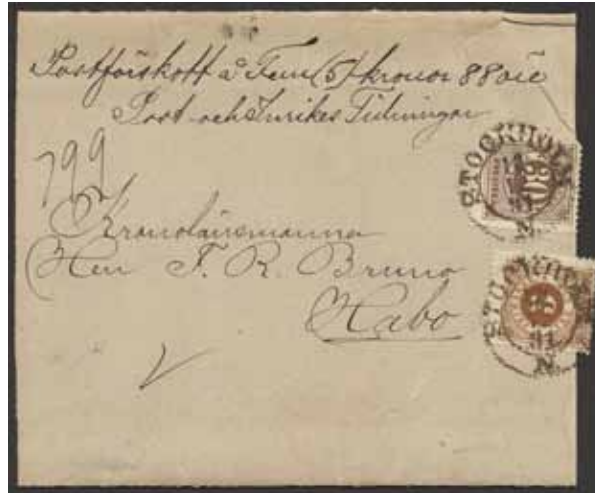 Postförskott à Fem (5) kronor 88 öre
Post och Inrikes Tidningar
799
Kronolänsmannen
Herr F. R. Bruno
Habo
STOCKHOLM
N.
STOCKHOLM
N.